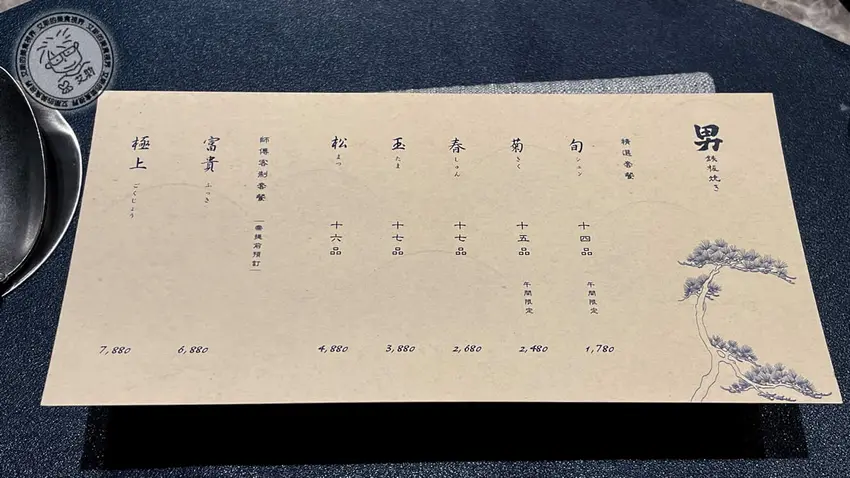 男
鉄板焼き
精選套餐
旬
シュン
十四品
午間限定
1,780
菊
きく
十五品
午間限定
2,480
春
しゅん
十七品
2,680
玉
たま
十七品
3,880
松
まつ
十六品
4,880
師傅客制套餐
(需提前預訂)
富貴
ふっき
6,880
極上
ごくじょう
7,880
艾斯的美食視界